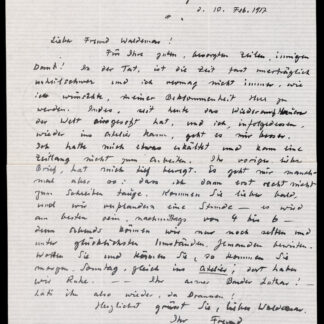 d. 10. Feb. 1917
Lieber Freund Waldemar!
Für Ihre guten, besorgten Zeilen, innigen
Dank! In der Tat, ist die Zeit fast unerträglich
unheilschwer und ich vermag nicht immer, wie
ich wünschte, meiner Beklommenheit Herr zu
werden. Indes, seit heute das
der Welt eingesetzt hat, und ich, infolgedessen
wieder ins Atelier kann, geht es mir besser.
Ich hatte mich etwas erkältet und kam eine
Zeitlang nicht zum Arbeiten. Ihr voriger, lieber
Brief, hat mich tief bewegt. Es geht mir manch-
mal aber so, dass ich dann erst recht nicht
zum Schreiben tauge. Kommen Sie lieber bald,
und wir verplaudern eine Stunde — es wird
am besten sein, nachmittags von 4 bis 6 —
denn abends können wir nur noch selten und
unter glücklichsten Umständen, jemanden bewirten.
Wollen Sie und können Sie, so kommen Sie
morgen, Sonntag, gleich ins Atelier; dort haben
wir Ruhe. — Ihr armer Bruder Lothar!
Herzlichst grüsst Sie, lieber Waldemar,
Ihr Freund